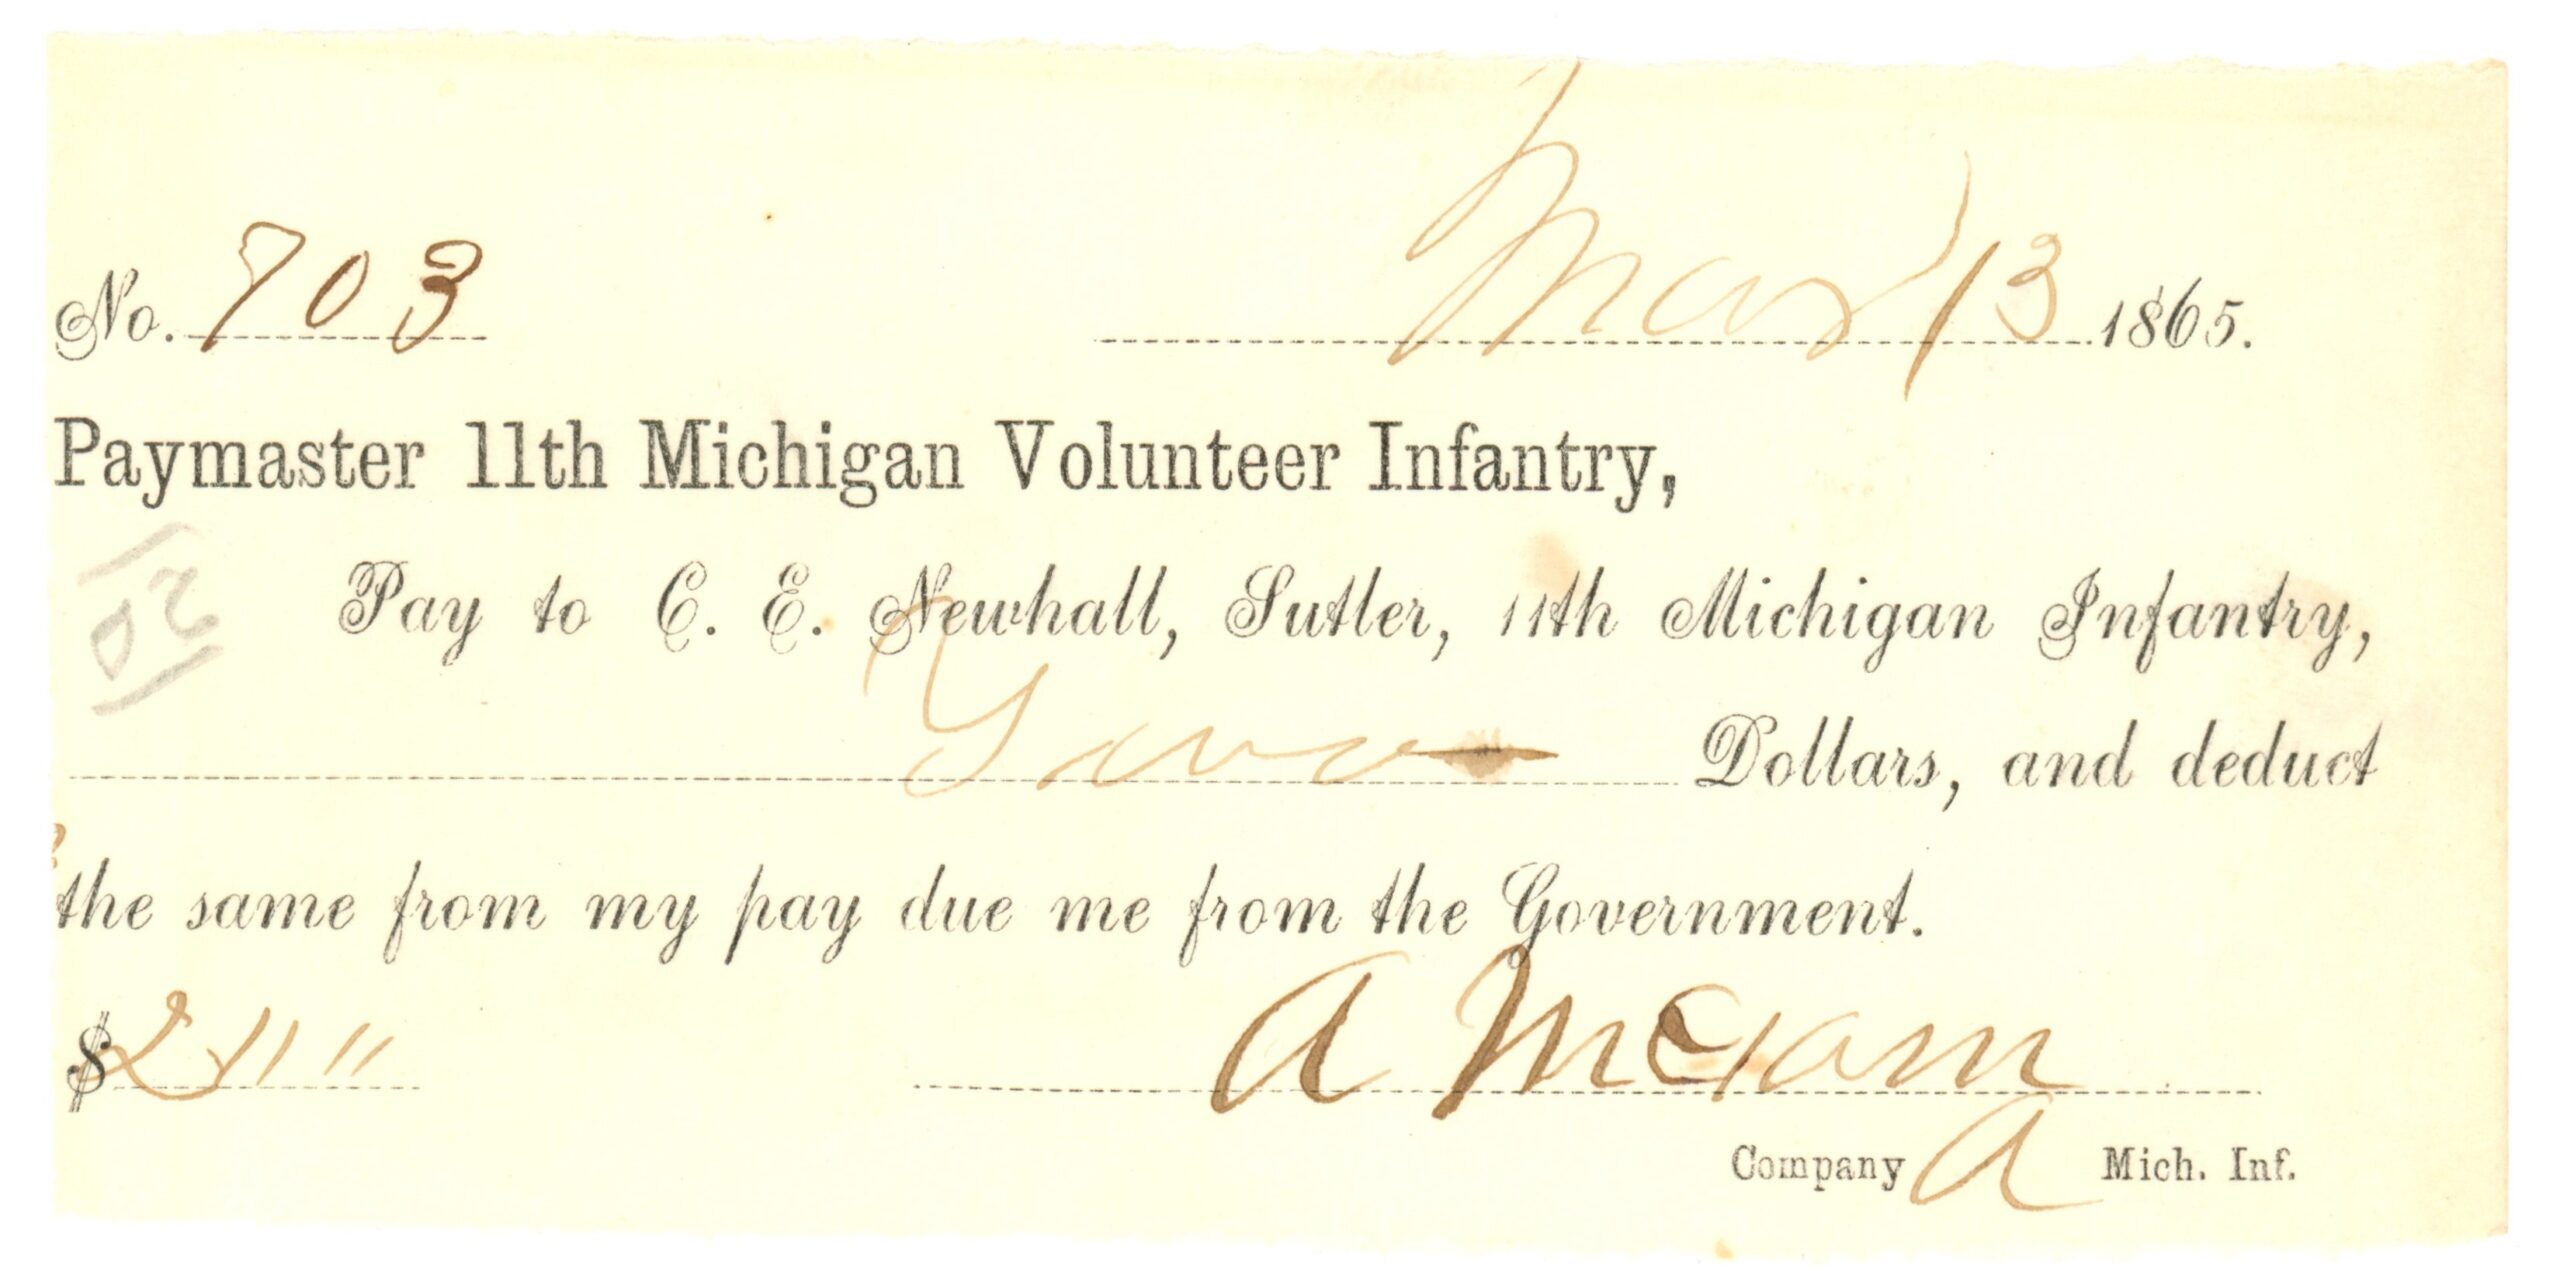 No. 703 Mar 13 1865.
Paymaster 11th Michigan Volunteer Infantry,
Pay to C. E. Newhall, Sutler, 11th Michigan Infantry,
Two Dollars, and deduct
the same from my pay due me from the Government.
$2 " " A
Company A Mich. Inf.